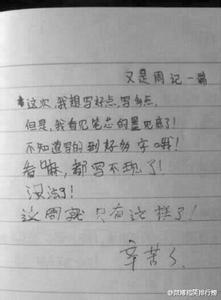 又是周记一篇
这次,我想写好点,写多点,
但是,我看见笔芯的墨见底了!
不知道写的到好多字哦!
看嘛,都写不现了!
没法了!
这周就只有这样了!
辛苦了
@微博搞笑排行榜